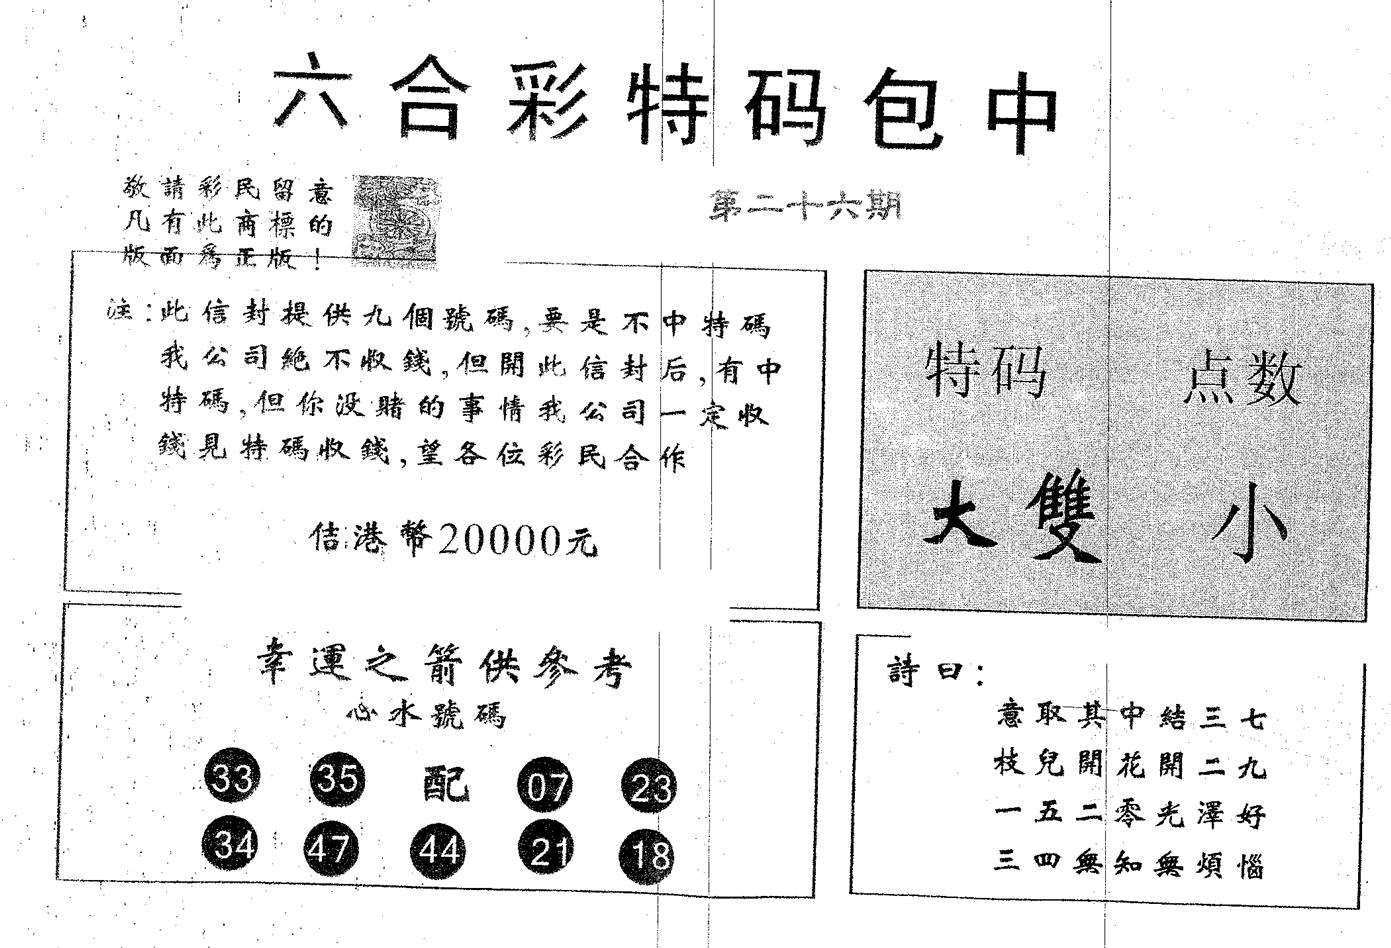 六合彩特码包中
敬請彩民留意
凡有此商標的
版面爲正版！
第二十六期
注：此信封提供九個號碼，要是不中特碼
我公司絶不收錢，但開此信封后，有中
特碼，但你没賭的事情我公司一定收
錢見特碼收錢，望各位彩民合作
佶港幣20000元
特码 点数
大雙 小
幸運之箭供參考
心水號碼
33 35 配 07 23
34 47 44 21 18
詩曰：
意取其中結三七
枝兒開花開二九
一五二零光澤好
三四無知無煩惱